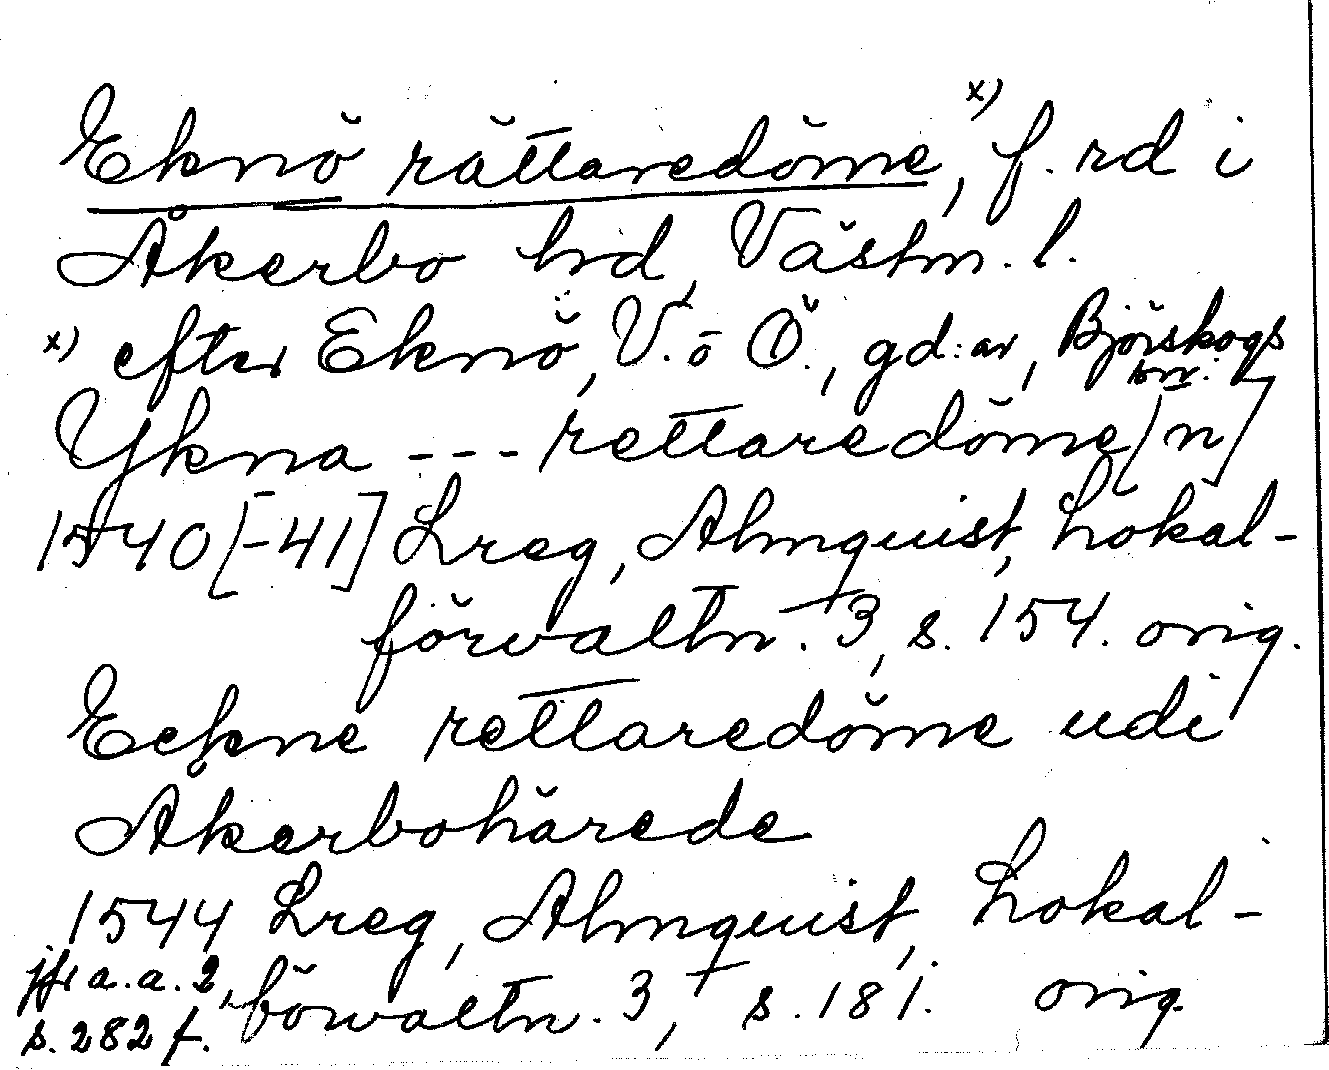 Eknö rättaredöme, x) f. rd i
Åkerbo hd, Västm. l.
x) efter Eknö, V. o Ö., gd:ar, Björskogs
sn.
Ykna --- rettaredöme[n]
1540[-41] Lreg, Almquist, Lokal-
förvaltn. 3, s. 154. orig.
Eckne rettaredöme udi
Åkerbohärede
1544 Lreg, Almquist, Lokal-
förvaltn. 3, s. 181. orig.
jfr a.a. 2,
s. 282 f.